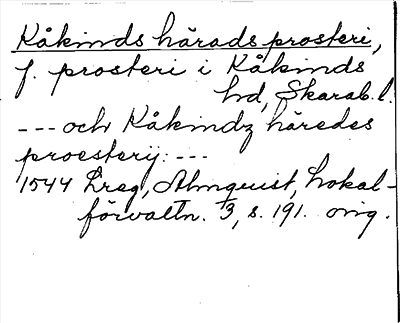 Kåkinds härads prosteri,
f. prosteri i Kåkinds
hd, Skarab.l.
--- och Kåkindz häredes
proesterij: ---
1544 Dreg, Almquist, Lokal-
förvaltn. 3, s. 191. orig.